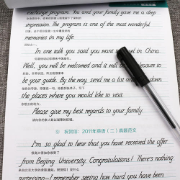 large program. You and your family gave me a deep
impression. The program is one of the most wonderful
moments in my life.
In one talk you said you want to travel in China.
Well, you will be welcomed and it will be my pleasure to
be your guide. By the way, send me a list of
the places where you would like to visit.
Please give my best regards to your family.
2017年英语(二)
I'm so glad to hear that you have received the offer
from Beijing University. Congratulations! There's nothing
I remember saying how hard you have been